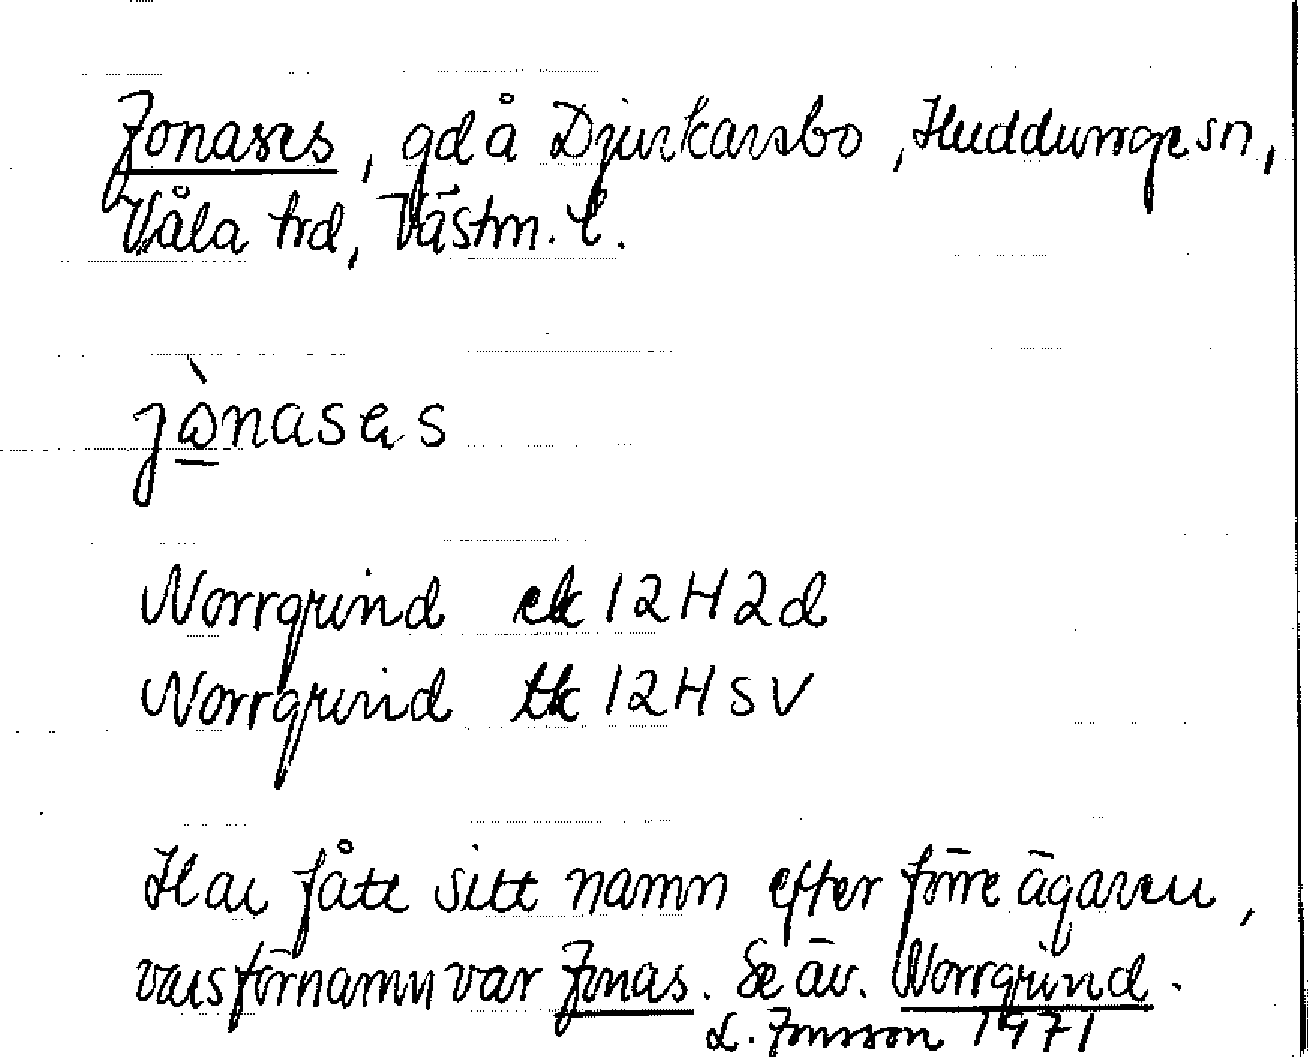 Jonases, gd å Djurkarsbo, Huddunge sn,
Våla hd, Västm. l.
jònases
Norrgrind ek 12H2d
Norrgrind tk 12HSV
Har fått sitt namn efter förre ägaren,
vars förnamn var Jonas. Se äv. Norrgrind.
L. Jonsson 1971